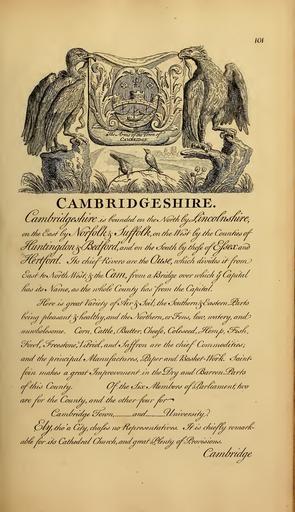 101
The Arms of the Town of
Cambridge
CAMBRIDGESHIRE.
Cambridgeshire is bounded on the North by Lincolnshire,
on the East by Norfolk & Suffolk, on the West by the Counties of
Huntingdon & Bedford, and on the South by those of Essex and
Hertford. Its chief Rivers are the Ouse, which divides it from
East to North-West; & the Cam, from a Bridge over which ye Capital
has its Name, as the whole County has from the Capital.
Here is great Variety of Air & Soil, the Southern & Eastern Parts
being pleasant & healthy, and the Northern, or Fens, low, watery, and
unwholesome. Corn, Cattle, Butter, Cheese, Coleseed, Hemp, Fish,
Fowl, Freestone, Vitriol, and Saffron are the chief Commodities;
and the principal Manufactures, Paper and Basket-Work. Saint-
foin makes a great Improvement in the Dry and Barren Parts
of this County. Of the Six Members of Parliament, two
are for the County, and the other four for
Cambridge Town, and University.
Ely, tho' a City, chuses no Representatives. It is chiefly remark-
able for its Cathedral Church, and great Plenty of Provisions.
Cambridge